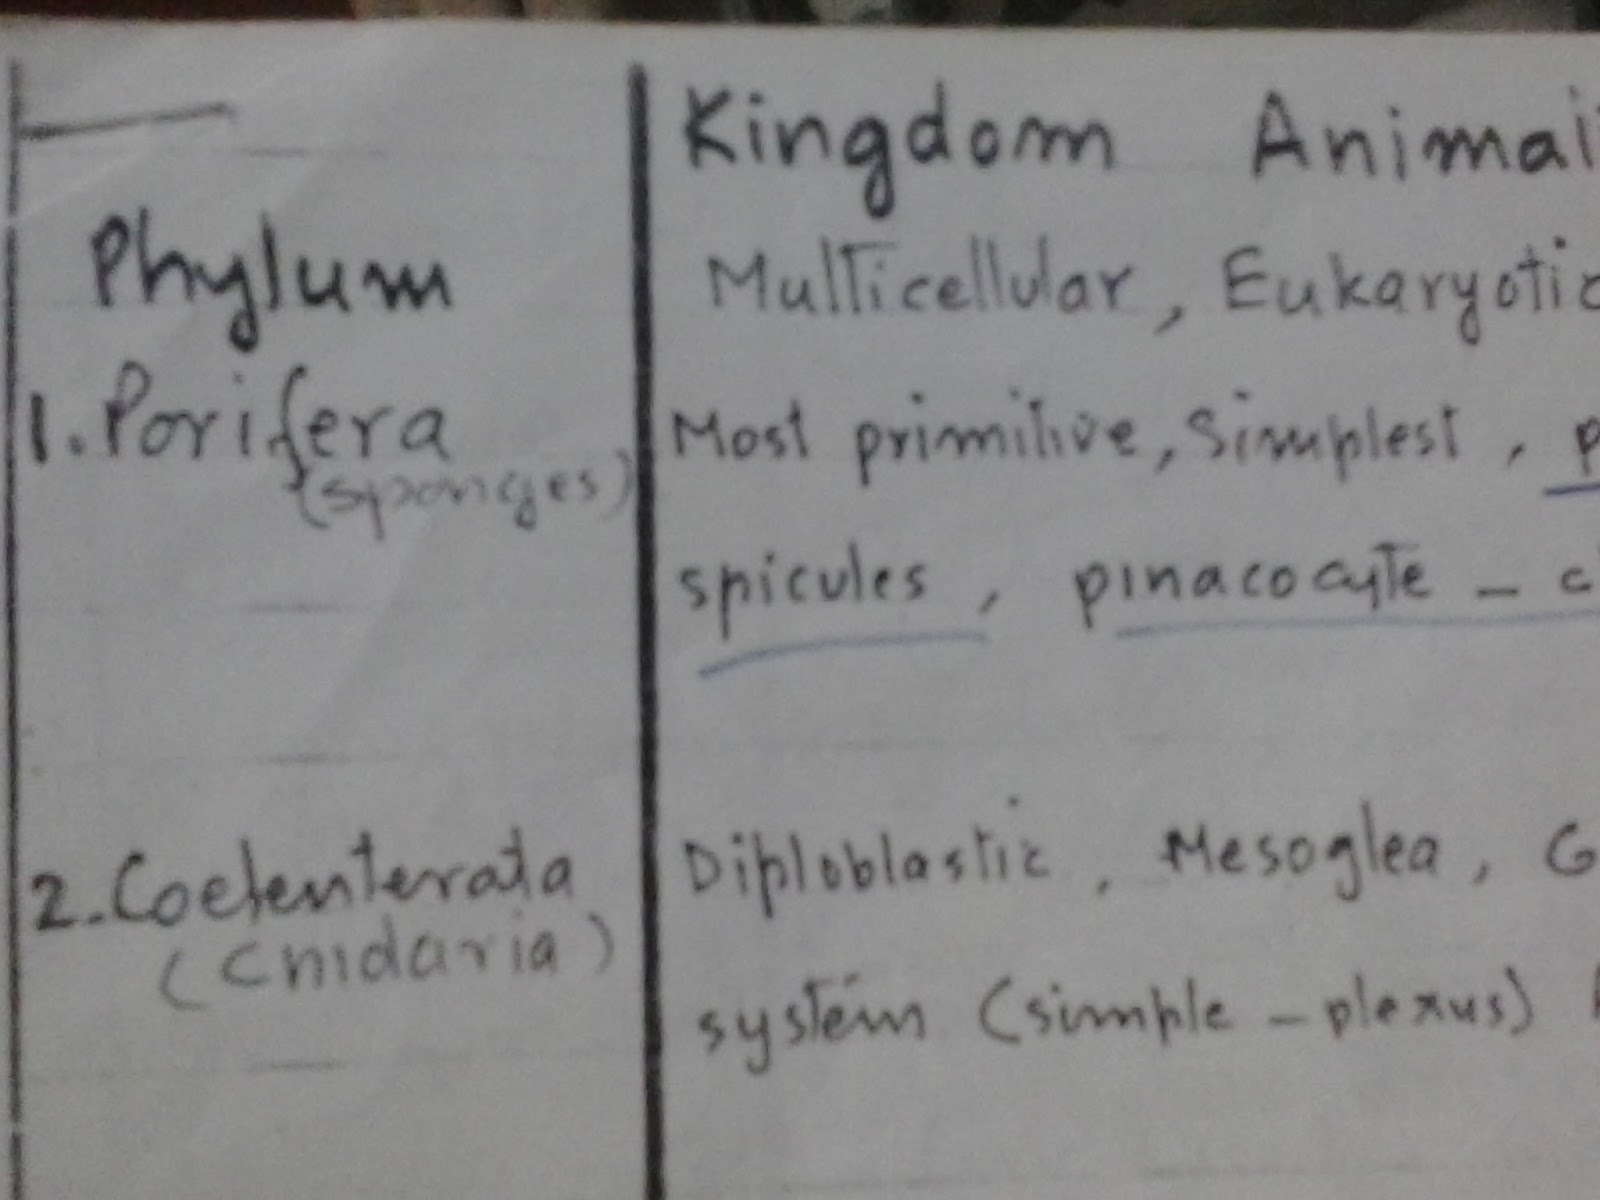 Kingdom Animal
Phylum
Multicellular, Eukaryotic
1. Porifera
(sponges)
Most primitive, Simplest, p
spicules, pinacocyte - c
2. Coelenterata
(Cnidaria)
Diploblastic, Mesoglea, G
system (simple - plexus)